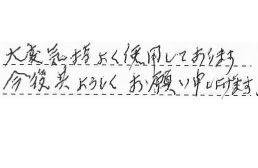 大変気持よく使用しております
今後共よろしくお願い申し上げます。